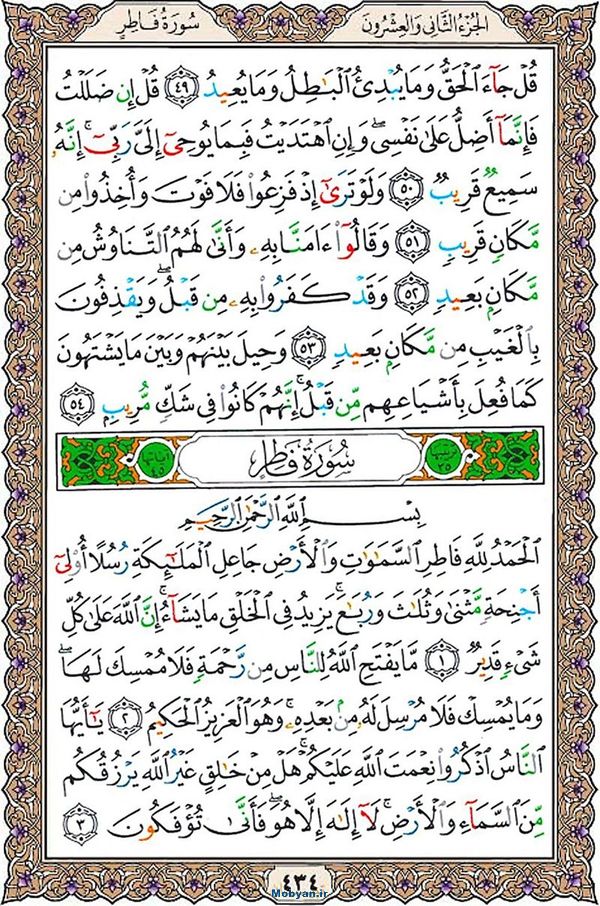 الجزء الثاني والعشرون
سورة فاطر
قُلْ جَآءَ ٱلْحَقُّ وَمَا يُبْدِئُ ٱلْبَـٰطِلُ وَمَا يُعِيدُ ٤٩ قُلْ إِن ضَلَلْتُ
فَإِنَّمَآ أَضِلُّ عَلَىٰ نَفْسِى ۖ وَإِنِ ٱهْتَدَيْتُ فَبِمَا يُوحِىٓ إِلَىَّ رَبِّىٓ ۚ إِنَّهُۥ
سَمِيعٌ قَرِيبٌ ٥٠ وَلَوْ تَرَىٰٓ إِذْ فَزِعُوا۟ فَلَا فَوْتَ وَأُخِذُوا۟ مِن
مَّكَانٍ قَرِيبٍ ٥١ وَقَالُوٓا۟ ءَامَنَّا بِهِۦ وَأَنَّىٰ لَهُمُ ٱلتَّنَاوُشُ مِن
مَّكَانٍۭ بَعِيدٍ ٥٢ وَقَدْ كَفَرُوا۟ بِهِۦ مِن قَبْلُ ۖ وَيَقْذِفُونَ
بِٱلْغَيْبِ مِن مَّكَانٍۭ بَعِيدٍ ٥٣ وَحِيلَ بَيْنَهُمْ وَبَيْنَ مَا يَشْتَهُونَ
كَمَا فُعِلَ بِأَشْيَاعِهِم مِّن قَبْلُ ۚ إِنَّهُمْ كَانُوا۟ فِى شَكٍّ مُّرِيبٍۭ ٥٤
ترتيبها ٣٥ سورة فاطر آياتها ٤٥
بِسْمِ ٱللَّهِ ٱلرَّحْمَـٰنِ ٱلرَّحِيمِ
ٱلْحَمْدُ لِلَّهِ فَاطِرِ ٱلسَّمَـٰوَٰتِ وَٱلْأَرْضِ جَاعِلِ ٱلْمَلَـٰٓئِكَةِ رُسُلًا أُو۟لِىٓ
أَجْنِحَةٍ مَّثْنَىٰ وَثُلَـٰثَ وَرُبَـٰعَ ۚ يَزِيدُ فِى ٱلْخَلْقِ مَا يَشَآءُ ۚ إِنَّ ٱللَّهَ عَلَىٰ كُلِّ
شَىْءٍ قَدِيرٌ ١ مَّا يَفْتَحِ ٱللَّهُ لِلنَّاسِ مِن رَّحْمَةٍ فَلَا مُمْسِكَ لَهَا ۖ
وَمَا يُمْسِكْ فَلَا مُرْسِلَ لَهُۥ مِنۢ بَعْدِهِۦ ۚ وَهُوَ ٱلْعَزِيزُ ٱلْحَكِيمُ ٢ يَـٰٓأَيُّهَا
ٱلنَّاسُ ٱذْكُرُوا۟ نِعْمَتَ ٱللَّهِ عَلَيْكُمْ ۚ هَلْ مِنْ خَـٰلِقٍ غَيْرُ ٱللَّهِ يَرْزُقُكُم
مِّنَ ٱلسَّمَآءِ وَٱلْأَرْضِ ۚ لَآ إِلَـٰهَ إِلَّا هُوَ ۖ فَأَنَّىٰ تُؤْفَكُونَ ٣
٤٣٤
Mobyan.ir